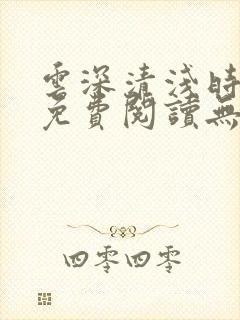 雲深清淺時
免費閱讀無
四零四零